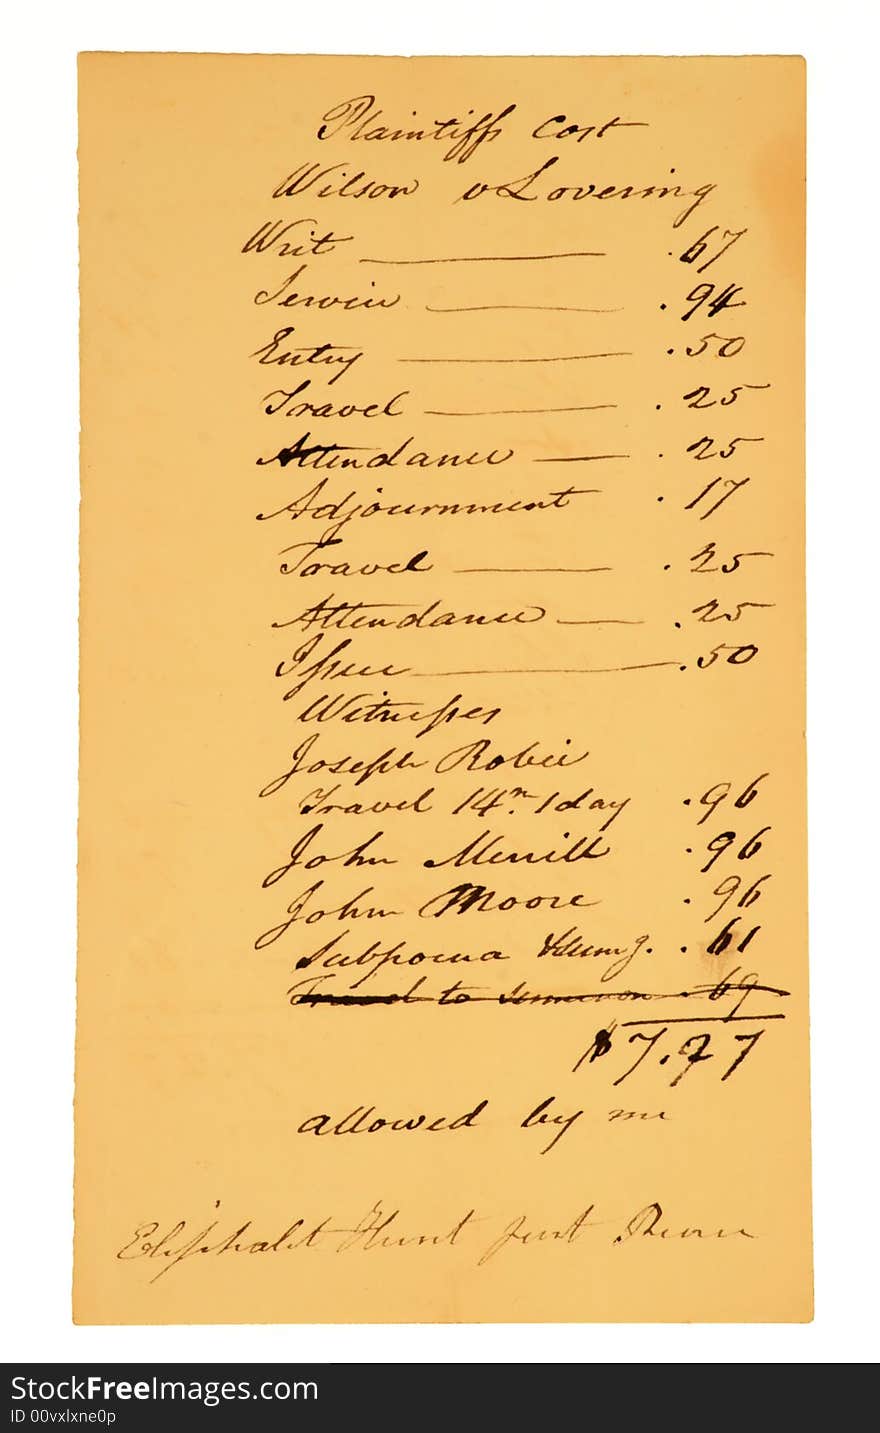 Plaintiffs Cost
Wilson v Lovering
Writ .67
Service .94
Entry .50
Travel .25
Attendance .25
Adjournment .17
Travel .25
Attendance .25
Issue .50
Witnesses
Joseph Robie
Travel 14m. 1 day .96
John Merrill .96
John Moore .96
Subpoena .61
Travel to .69
$7.27
allowed by me
Eliphalet Hunt Just
StockFreeImages.com
ID 00vxlxne0p